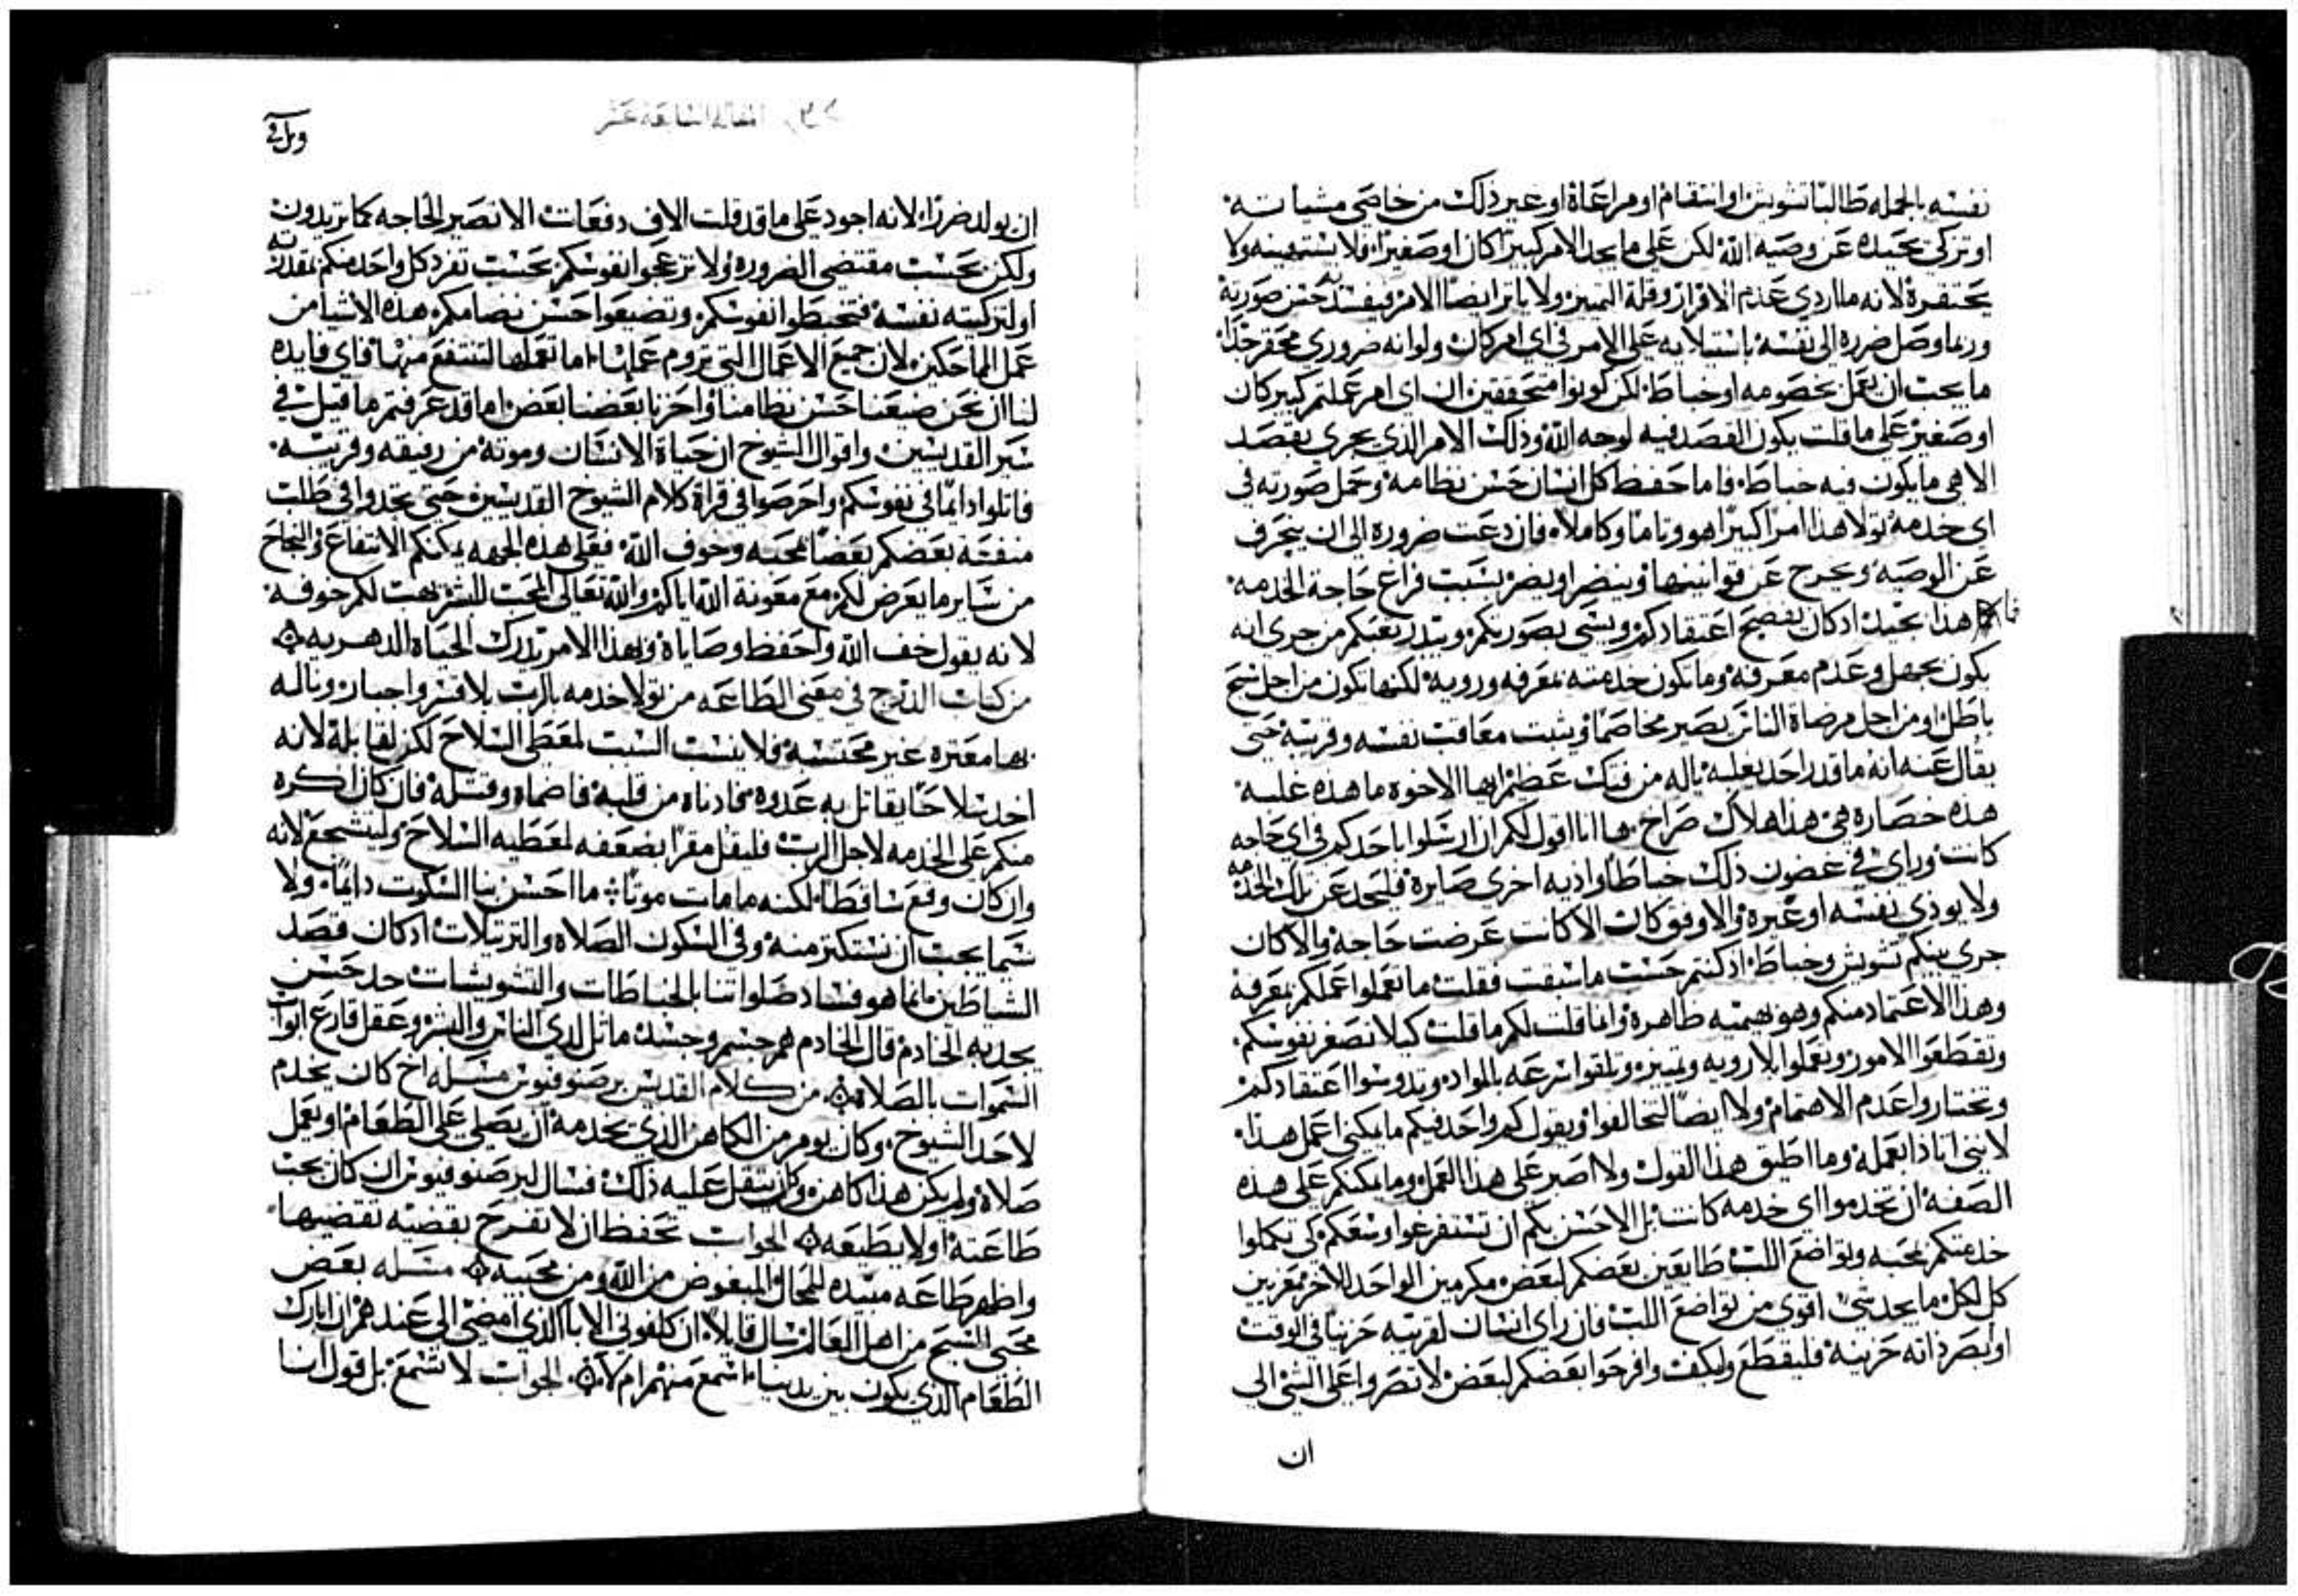 نفسه بالجمله طالبا تشويش او انتقام او مراعاة او غير ذلك من خاصي مشياته
او تزكي تحيده عن وصية الله لكن على ما يحد الامر كبيرا كان او صغيرا فلا يستهينه ولا
يحتقره لانه ما اردى عدم الاقرار وقلة التمييز ولا ياثر ايضا الامر فيفسد به حسن صورته
وربما وصل ضرره الى نفسه باستيلايه على الامر في اي امر كان ولو انه ضروري محقر جدا
ما يجب ان يعمل بخصومه او خباط لكن كونوا متحققين ان اي امر عملتم كبير كان
او صغير على ما قلت يكون القصد فيه لوجه الله وذلك الامر الذي يجري بقصد
الاهي ما يكون فيه خباط فاما حفظ كل انسان حسن نظامه وحمل صورته في
اي خدمة تولا هذا امرا كبيرا هو وتاما وكاملا فان دعت ضرورة الى ان ينحرف
عن الوصيه ويخرج عن قوانينها وينضر او يضر بسبب فراغ حاجة الخدمه
هذا بحيث اذ كان يفضح اعتقادكم ويشي بصورتكم ويبدر تعبكم من جرى انه
يكون بجهل وعدم معرفه وما تكون خدمته بمعرفه ورويه لكنها تكون من اجل سبح
باطل او من اجل مرضاة الناس يصير مخاصما ويثبت معاقب نفسه وقريبه حتى
يقال عنه انه ما قدر احد يغلبه ياله من فتك عظيم ايها الاخوه ما هذه غلبه
هذه خصاره هي هذا هلاك صراح ها انا اقول لكم ان ارسلوا باحدكم في اي حاجه
كانت وراى في غضون ذلك خباطا او اذيه اخرى صايره فليحد عن تلك الخدمه
ولا يوذي نفسه او غيره والاوفق كان الا كانت عرضت حاجه والا كان
جرى بينكم تشويش وخباط اذ كنتم حسب ما سبقت فقلت ما تعملوا عملكم بمعرفه
وهذا الاعتماد منكم وهو بهيميه ظاهرة وانما قلت لكم ما قلت كيلا تصغر نفوسكم
وتقطعوا الامور وتعملوا بلا رويه وتمييز وتلقوا سرعه بالمواد وتدوسوا اعتقادكم
وتختاروا عدم الاهتمام ولا ايضا لتخالفوا ويقول كل واحد فيكم ما يمكني اعمل هذا
لانني انا اذا بعمله وما اطيق هذا القول ولا اصبر على هذا العمل وما يمكنكم على هذه
الصفه ان تخدموا اي خدمه كانت بل الاحسن بكم ان تستفرغوا وسعكم كي تكملوا
خدمتكم بمحبه وتواضع اللب طايعين بعضكم لبعض مكرمين الواحد للاخر معزيين
كل لكل ما يحد شي اقوى من تواضع اللب فان راى انسان لقريبه حزينا في الوقت
او ابصر ذاته حزينه فليقطع وليكف وافرجوا بعضكم لبعض لا تصروا على الشي الى
ان
ان يولد ضررا لانه اجود على ما قد قلت الاف دفعات الا تصير الحاجه كما تريدون
ولكن بحسب مقتضى الضروره ولا تزعجوا نفوسكم بحسب تفرد كل واحد منكم بمقدرته
او لتزكيته نفسه فتخبطوا نفوسكم وتضيعوا حسن نضامكم هذه الاشيا من
عمل المماحكين لان جميع الاعمال التي تروم عملها اما تعملها لتنتفع منها فاي فايده
لنا ان نحن ضيعنا حسن نظامنا واحزنا بعضنا بعض اما قد عرفتم ما قيل في
سير القديسين واقوال الشيوخ ان حياة الانسان وموته من رفيقه وقريبه
فاتلوا دايما في نفوسكم واحرصوا في قراة كلام الشيوخ القديسين حتى تجدوا في طلب
منفعة بعضكم بعضا بمحبه وخوف الله فعلى هذه الجهه يمكنكم الانتفاع والنجاح
من ساير ما يعرض لكم مع معونة الله اياكم والله تعالى المحب للبشر يهب لكم خوفه
لانه يقول خف الله واحفظ وصاياه وبهذا الامر تدرك الحياه الدهريه
من كتاب الدرج في معنى الطاعه من تولا خدمه بالرب بلا قسر واجبار وناله
بها معثره غير محتسبه فلا ينسب السبب لمعطي السلاح لكن لقابله لانه
اخذ سلاحا يقاتل به عدوه فحادناه من قلبه فاصماه وقتله فان كان اكره
منكم على الخدمه لاجل الرب فليقل مقرا بضعفه لمعطيه السلاح وليتشجع لانه
وان كان وقع ساقطا لكنه ما مات موتا ما احسن بنا السكوت دايما ولا
سيما يجب ان نستكثر منه وفي السكون الصلاه والترتيلات اذ كان قصد
الشياطين انما هو فساد صلواتنا بالخباطات والتشويشات حد حسن
يحد به الخادم قال الخادم هو جسم وجسد ماثل لدى الناس والبشر وعقل قارع ابواب
السموات بالصلاة من كلام القديس برصنوفيوس مسله اخ كان يخدم
لاحد الشيوخ وكان يومر من الكاهن الذي يخدمه ان يصلي على الطعام او يعمل
صلاة ولم يكن هذا كاهن وكان يثقل عليه ذلك فسال لبرصنوفيوس ان كان يجب
طاعته او لا يطيعه الجواب تحفظ ان لا تفرح بقضيه تقضيها
واظهر طاعه مبيده للمحال المبغوض من الله ومن محبيه مسله بعض
محبي المسيح من اهل العالم سال قايلا ان كلفوني الابا الذي امضي الى عندهم ان ابارك
الطعام الذي يكون بين يدينا اسمع منهم ام لا الجواب لا تسمع بل قول انا